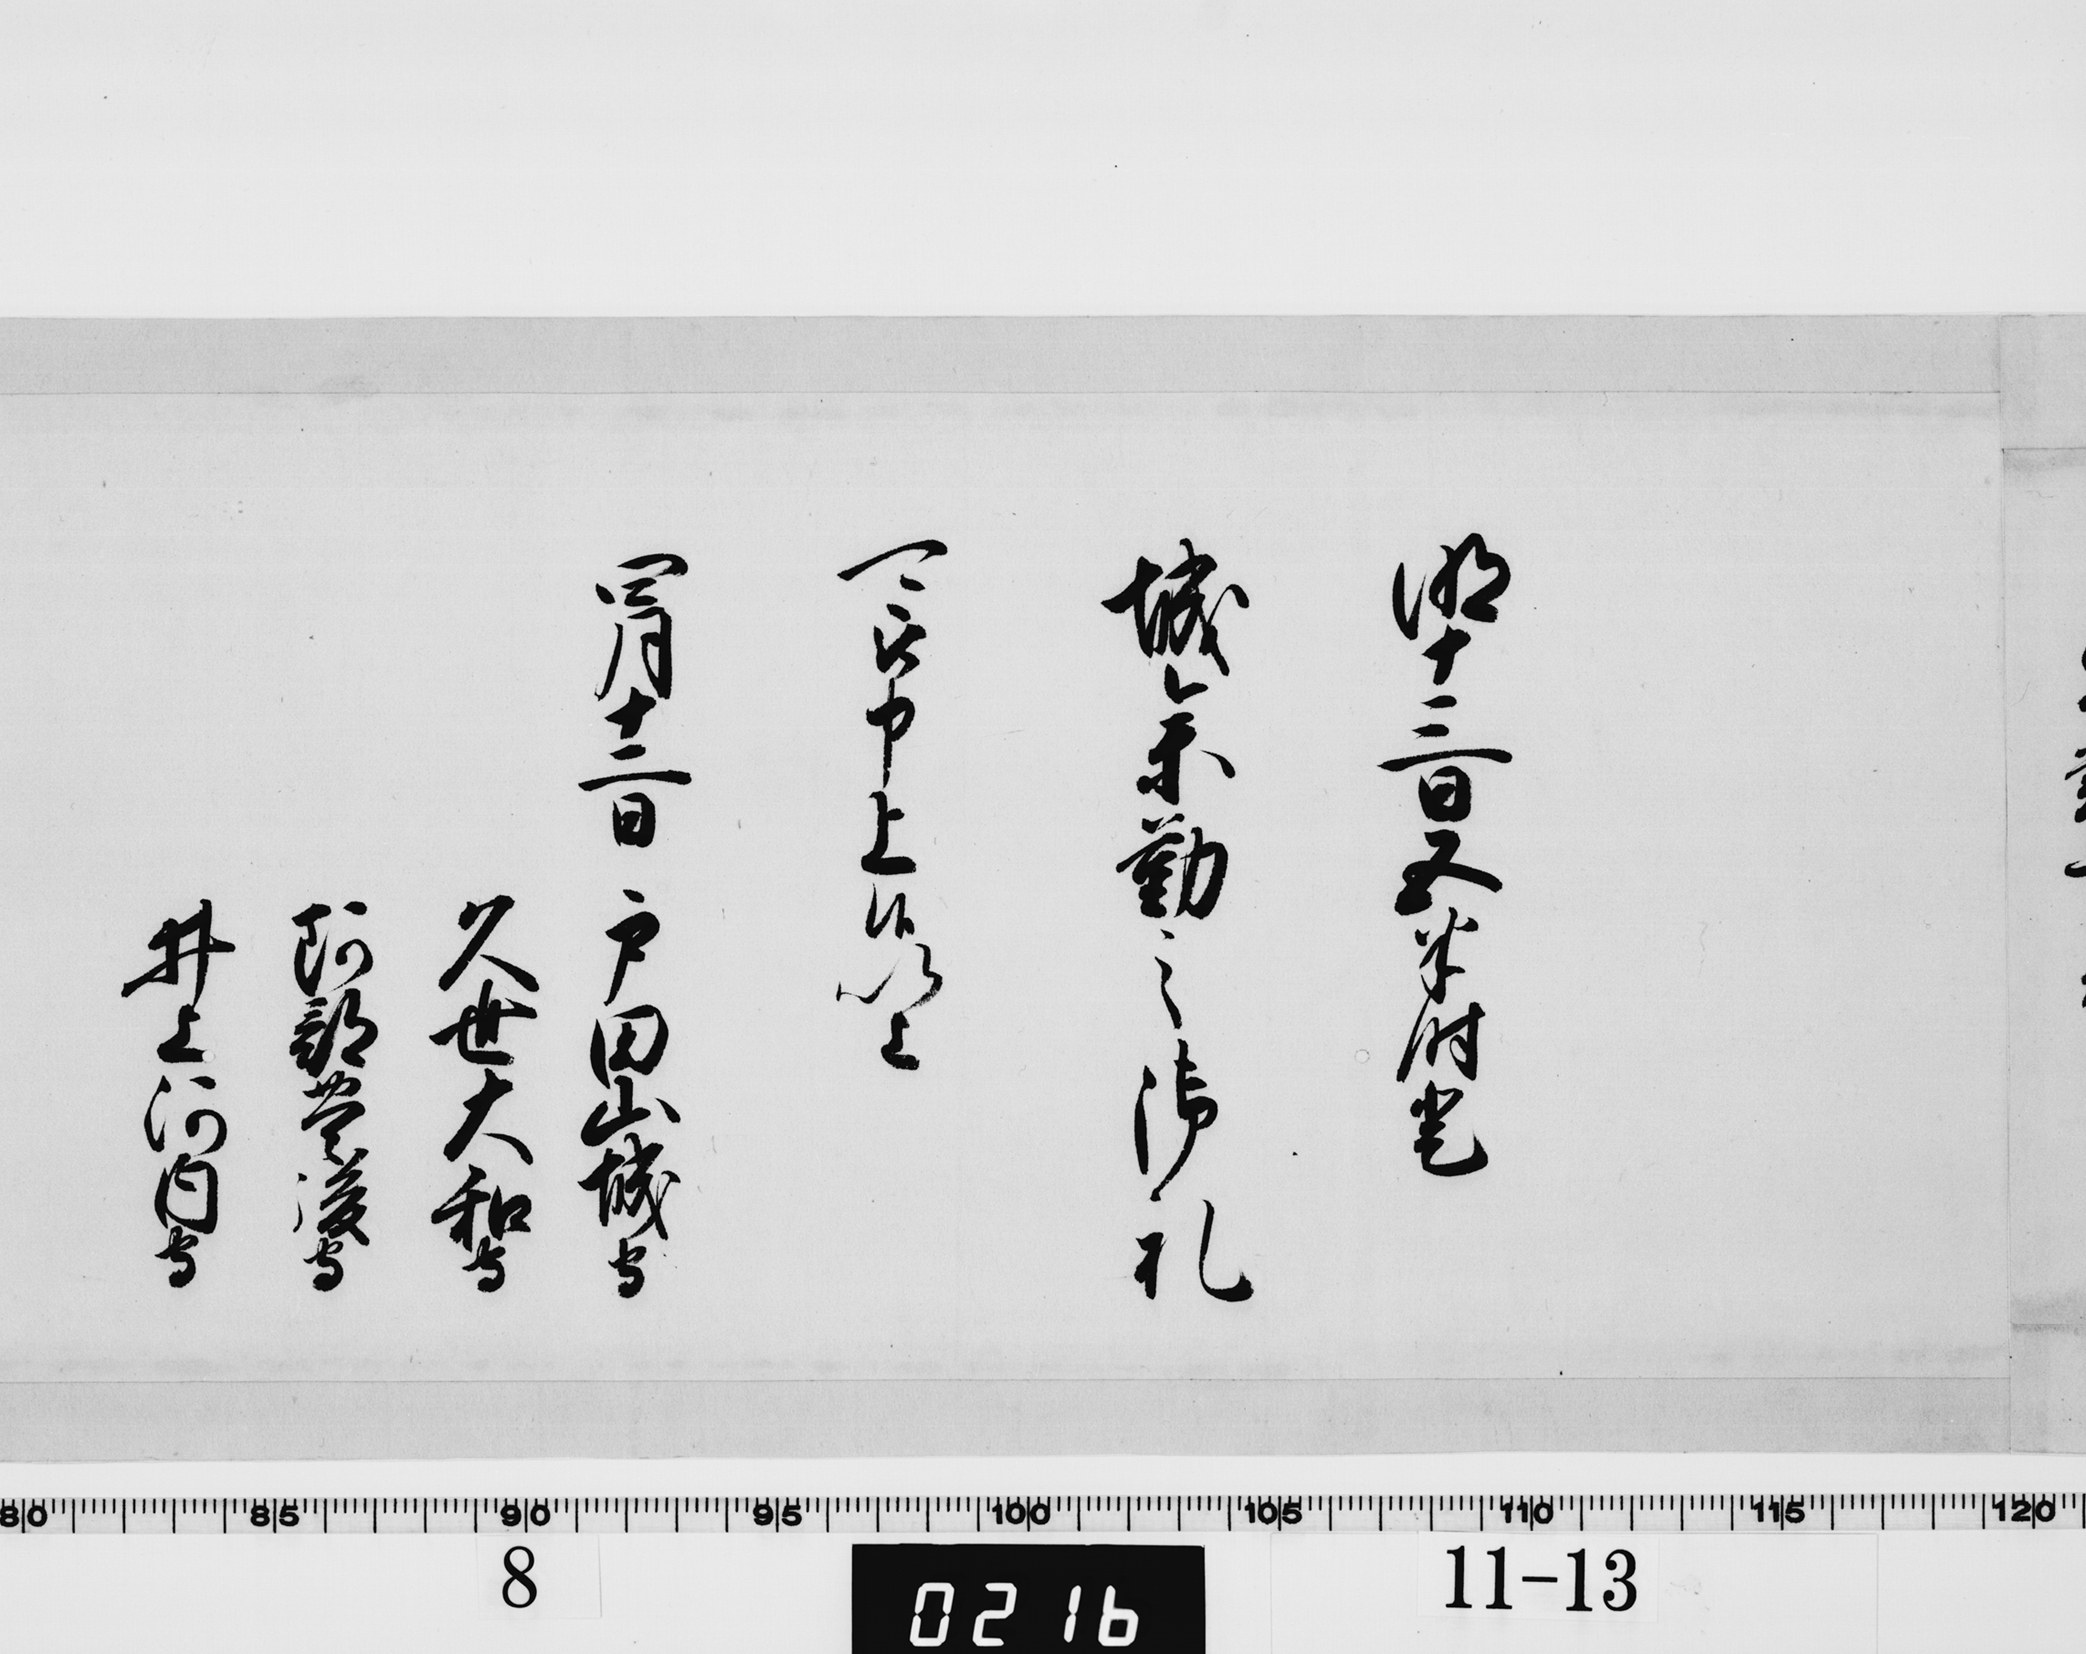 明十三日五半時登
城参勤之御礼
可被申上候以上
四月十二日 戸田山城守
久世大和守
阿部豊後守
井上河内守
80 85 90 95 100 105 110 115 120
8
0216
11-13